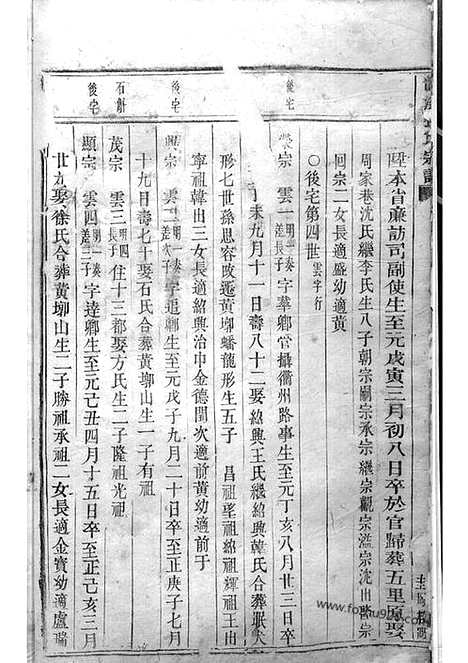 陞本省廉訪司副使生至元戊寅三月初八日卒於官歸葬五里原娶
周家巷沈氏繼李氏生八子朝宗嗣宗承宗繼宗觀宗溢宗沈出啓宗
回宗二女長適盛幼適黃
○後宅第四世雲字行
後宅
宗 雲一明一奏長子字羣卿管攝衢州路事生至元丁亥八月廿三日卒
丁未九月十一日壽八十二娶紹興王氏繼紹興韓氏合葬眠犬
形七世孫思容改遷黃㘭蟠龍形生五子 昌祖望祖紹祖輝祖王出
寧祖韓出三女長適紹興治中金德閏次適前黃幼適前于
後宅
興宗 雲二明一奏次子字追卿生至元戊子九月二十日卒至正庚子七月
十九日壽七十娶石氏合葬黃㘭山生一子有祖
石斛
茂宗 雲三明四長子住十三都娶方氏生二子隆祖光祖
後宅
顯宗 雲四明一奏差三子字達卿生至元己丑四月十五日卒至正己亥三月
廿九娶徐氏合葬黃㘭山生二子勝祖承祖二女長適金寶幼適盧瑞